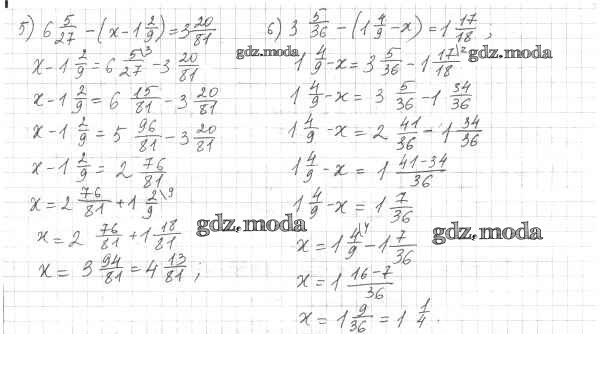 5) 6 5/27 − (x − 1 2/9) = 3 20/81
x − 1 2/9 = 6 5/27 \3 − 3 20/81
x − 1 2/9 = 6 15/81 − 3 20/81
x − 1 2/9 = 5 96/81 − 3 20/81
x − 1 2/9 = 2 76/81
x = 2 76/81 + 1 2/9 \9
x = 2 76/81 + 1 18/81
x = 3 94/81 = 4 13/81 ;
6) 3 5/36 − (1 4/9 − x) = 1 17/18 ;
1 4/9 − x = 3 5/36 − 1 17/18 \2
1 4/9 − x = 3 5/36 − 1 34/36
1 4/9 − x = 2 41/36 − 1 34/36
1 4/9 − x = 1 41−34/36
1 4/9 − x = 1 7/36
x = 1 4/9 \4 − 1 7/36
x = 1 16−7/36
x = 1 9/36 = 1 1/4 .
gdz.moda
gdz.moda
gdz.moda
gdz.moda